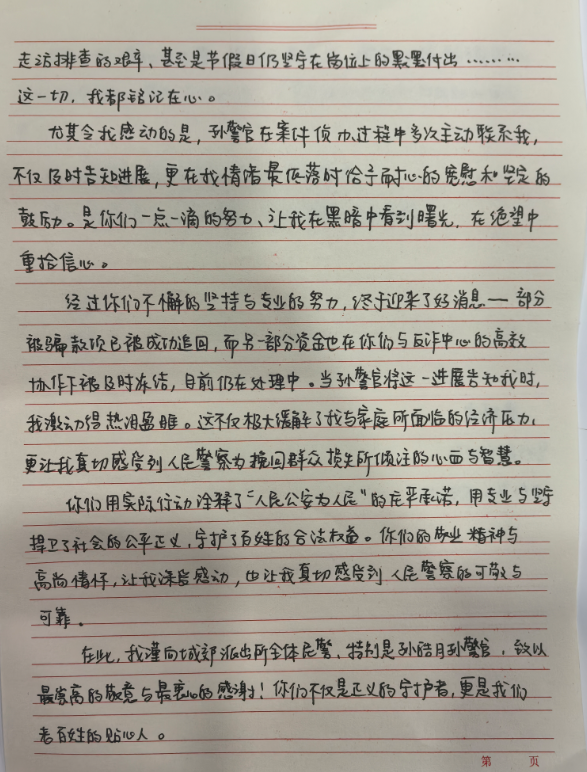 走访排查的艰辛、甚至是节假日仍坚守在岗位上的默默付出………
这一切，我都铭记在心。
尤其令我感动的是，孙警官在案件侦办过程中多次主动联系我，
不仅及时告知进展，更在我情绪最低落时给予耐心的宽慰和坚定的
鼓励。是你们一点一滴的努力、让我在黑暗中看到曙光，在绝望中
重拾信心。
经过你们不懈的坚持与专业的努力，终于迎来了好消息——部分
被骗款项已被成功追回，而另一部分资金也在你们与反诈中心的高效
协作下被及时冻结，目前仍在处理中。当孙警官将这一进展告知我时，
我激动得热泪盈眶。这不仅极大缓解了我与家庭所面临的经济压力，
更让我真切感受到人民警察为挽回群众损失所倾注的心血与智慧。
你们用实际行动诠释了“人民公安为人民”的庄严承诺，用专业与坚守
捍卫了社会的公平正义，守护了百姓的合法权益。你们的敬业精神与
高尚情怀，让我深受感动，也让我真切感受到人民警察的可敬与
可靠。
在此，我谨向城郊派出所全体民警、特别是孙皓月孙警官，致以
最崇高的敬意与最衷心的感谢！你们不仅是正义的守护者，更是我们
老百姓的贴心人。
第 页